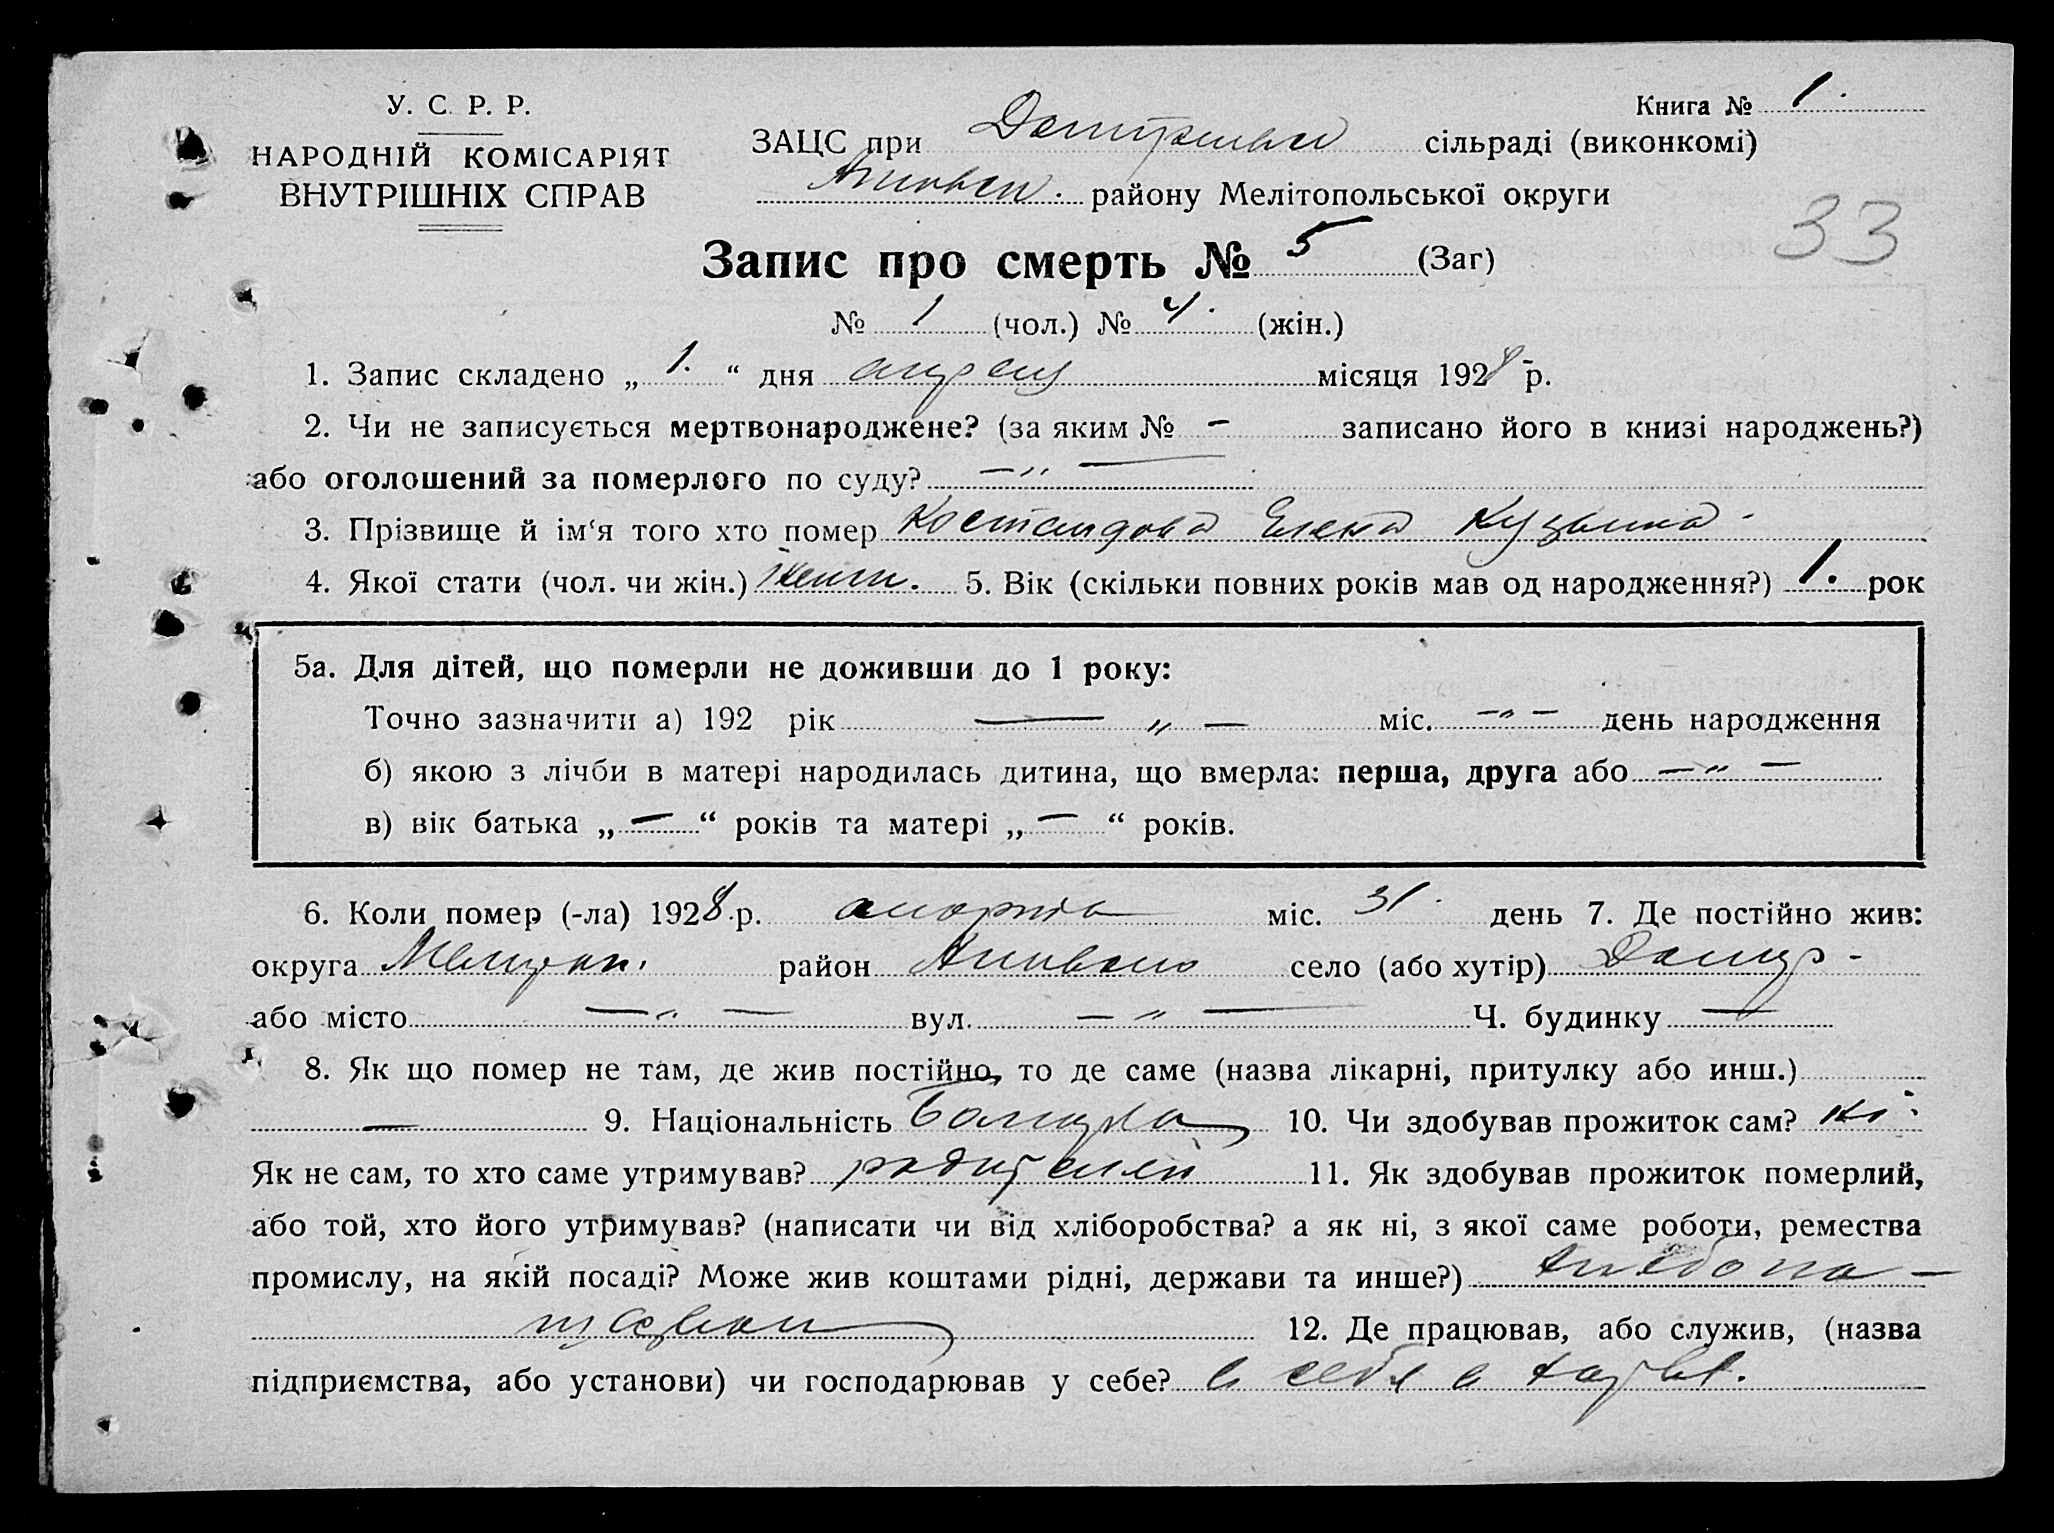 У. С. Р. Р.
НАРОДНІЙ КОМІСАРІЯТ
ВНУТРІШНІХ СПРАВ
Книга № 1.
ЗАЦС при сільраді (виконкомі)
району Мелітопольської округи
33
Запис про смерть № 5 (Заг)
№ 1 (чол.) № 4. (жін.)
1. Запис складено „ 1. “ дня апреля місяця 1928 р.
2. Чи не записується мертвонароджене? (за яким № — записано його в книзі народжень?)
або оголошений за померлого по суду? — „ —
3. Прізвище й ім‘я того хто помер Костандова Елена Кузьмина.
4. Якої стати (чол. чи жін.) женск. 5. Вік (скільки повних років мав од народження?) 1. рок
5а. Для дітей, що померли не доживши до 1 року:
Точно зазначити а) 192 рік — „ — міс. — „ — день народження
б) якою з лічби в матері народилась дитина, що вмерла: перша, друга або — „ —
в) вік батька „ — “ років та матері „ — “ років.
6. Коли помер (-ла) 1928 р. марта міс. 31. день 7. Де постійно жив:
округа район село (або хутір)
або місто — „ — вул. — „ — Ч. будинку —
8. Як що помер не там, де жив постійно, то де саме (назва лікарні, притулку або инш.)
— 9. Національність Болгарка 10. Чи здобував прожиток сам? ні
Як не сам, то хто саме утримував? родителей 11. Як здобував прожиток померлий,
або той, хто його утримував? (написати чи від хліборобства? а як ні, з якої саме роботи, ремества
промислу, на якій посаді? Може жив коштами рідні, держави та инше?) хлебопа-
шеством 12. Де працював, або служив, (назва
підприємства, або установи) чи господарював у себе? в себя в хозяв.